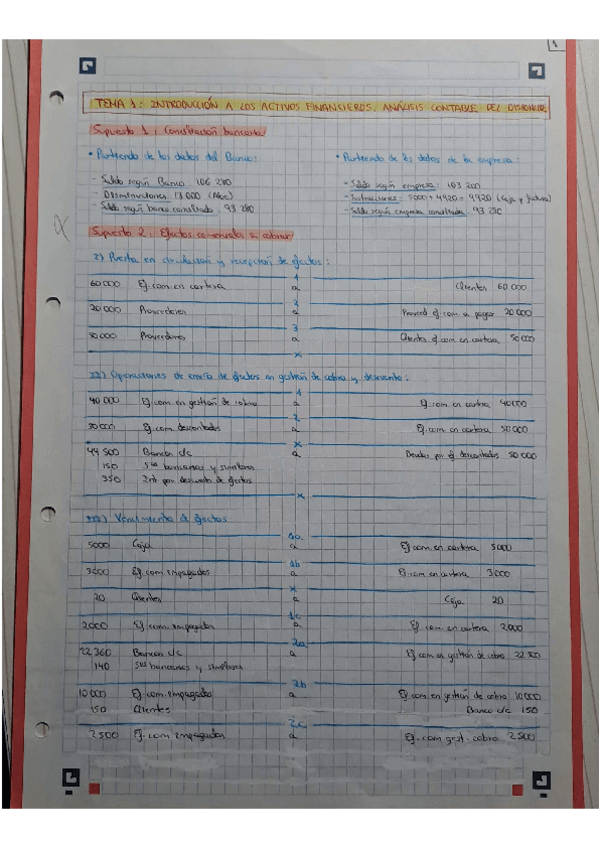 1
TEMA 1: INTRODUCCIÓN A LOS ACTIVOS FINANCIEROS. ANÁLISIS CONTABLE DEL DISPONIBLE
Supuesto 1: Conciliación bancaria
• Partiendo de los datos del Banco:
- Saldo según Banco: 106 280
- Disminuciones: 13 000 (Abec)
- Saldo según banco conciliado: 93 280
• Partiendo de los datos de la empresa:
- Saldo según empresa: 103 200
- Sustracciones: 5000 + 4920 = 9920 (Caja y factura)
- Saldo según empresa conciliada: 93 280
Supuesto 2: Efectos comerciales a cobrar
I) Puesta en circulación y recepción de efectos:
1
60 000 Ef. com en cartera a Clientes 60 000
2
20 000 Proveedores a Proveed ef. com a pagar 20 000
3
50 000 Proveedores a Clientes ef com en cartera 50 000
x
II) Operaciones de envío de efectos en gestión de cobro y descuento:
1
40 000 Ef. com en gestión de cobro a Ef. com en cartera 40 000
2
50 000 Ef. com descontados a Ef. com en cartera 50 000
x
49 500 Bancos c/c a Deudas por ef descontados 50 000
150 Sºs bancarios y similares
350 Int por descuento de efectos
x
III) Vencimiento de efectos
1a
5000 Caja a Ef com en cartera 5000
1b
3000 Ef. com. impagados a Ef. com en cartera 3000
x
20 Clientes a Caja 20
1c
2000 Ef. com. impagados a Ef. com en cartera 2000
2a
22 360 Bancos c/c a Ef com en gestión de cobro 22 500
140 Sºs bancarios y similares
2b
10 000 Ef. com. impagados a Ef. com en gestión de cobro 10 000
150 Clientes Banco c/c 150
2c
2 500 Ef. com impagados a Ef. com gest. cobro 2 500